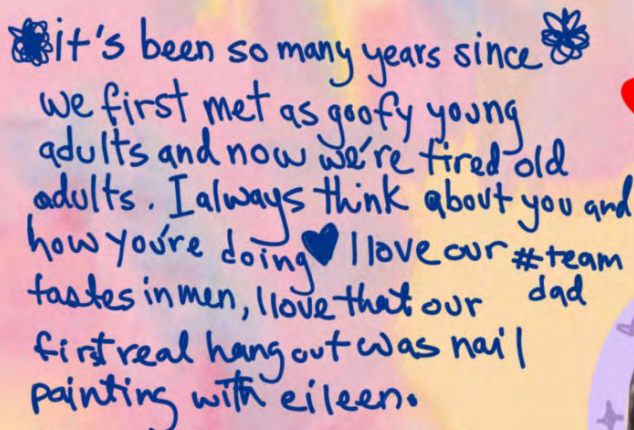 it's been so many years since
we first met as goofy young
adults and now we're tired old
adults. I always think about you and
how you're doing♥ I love our #team
dad
tastes in men, I love that our
first real hang out was nail
painting with eileen.